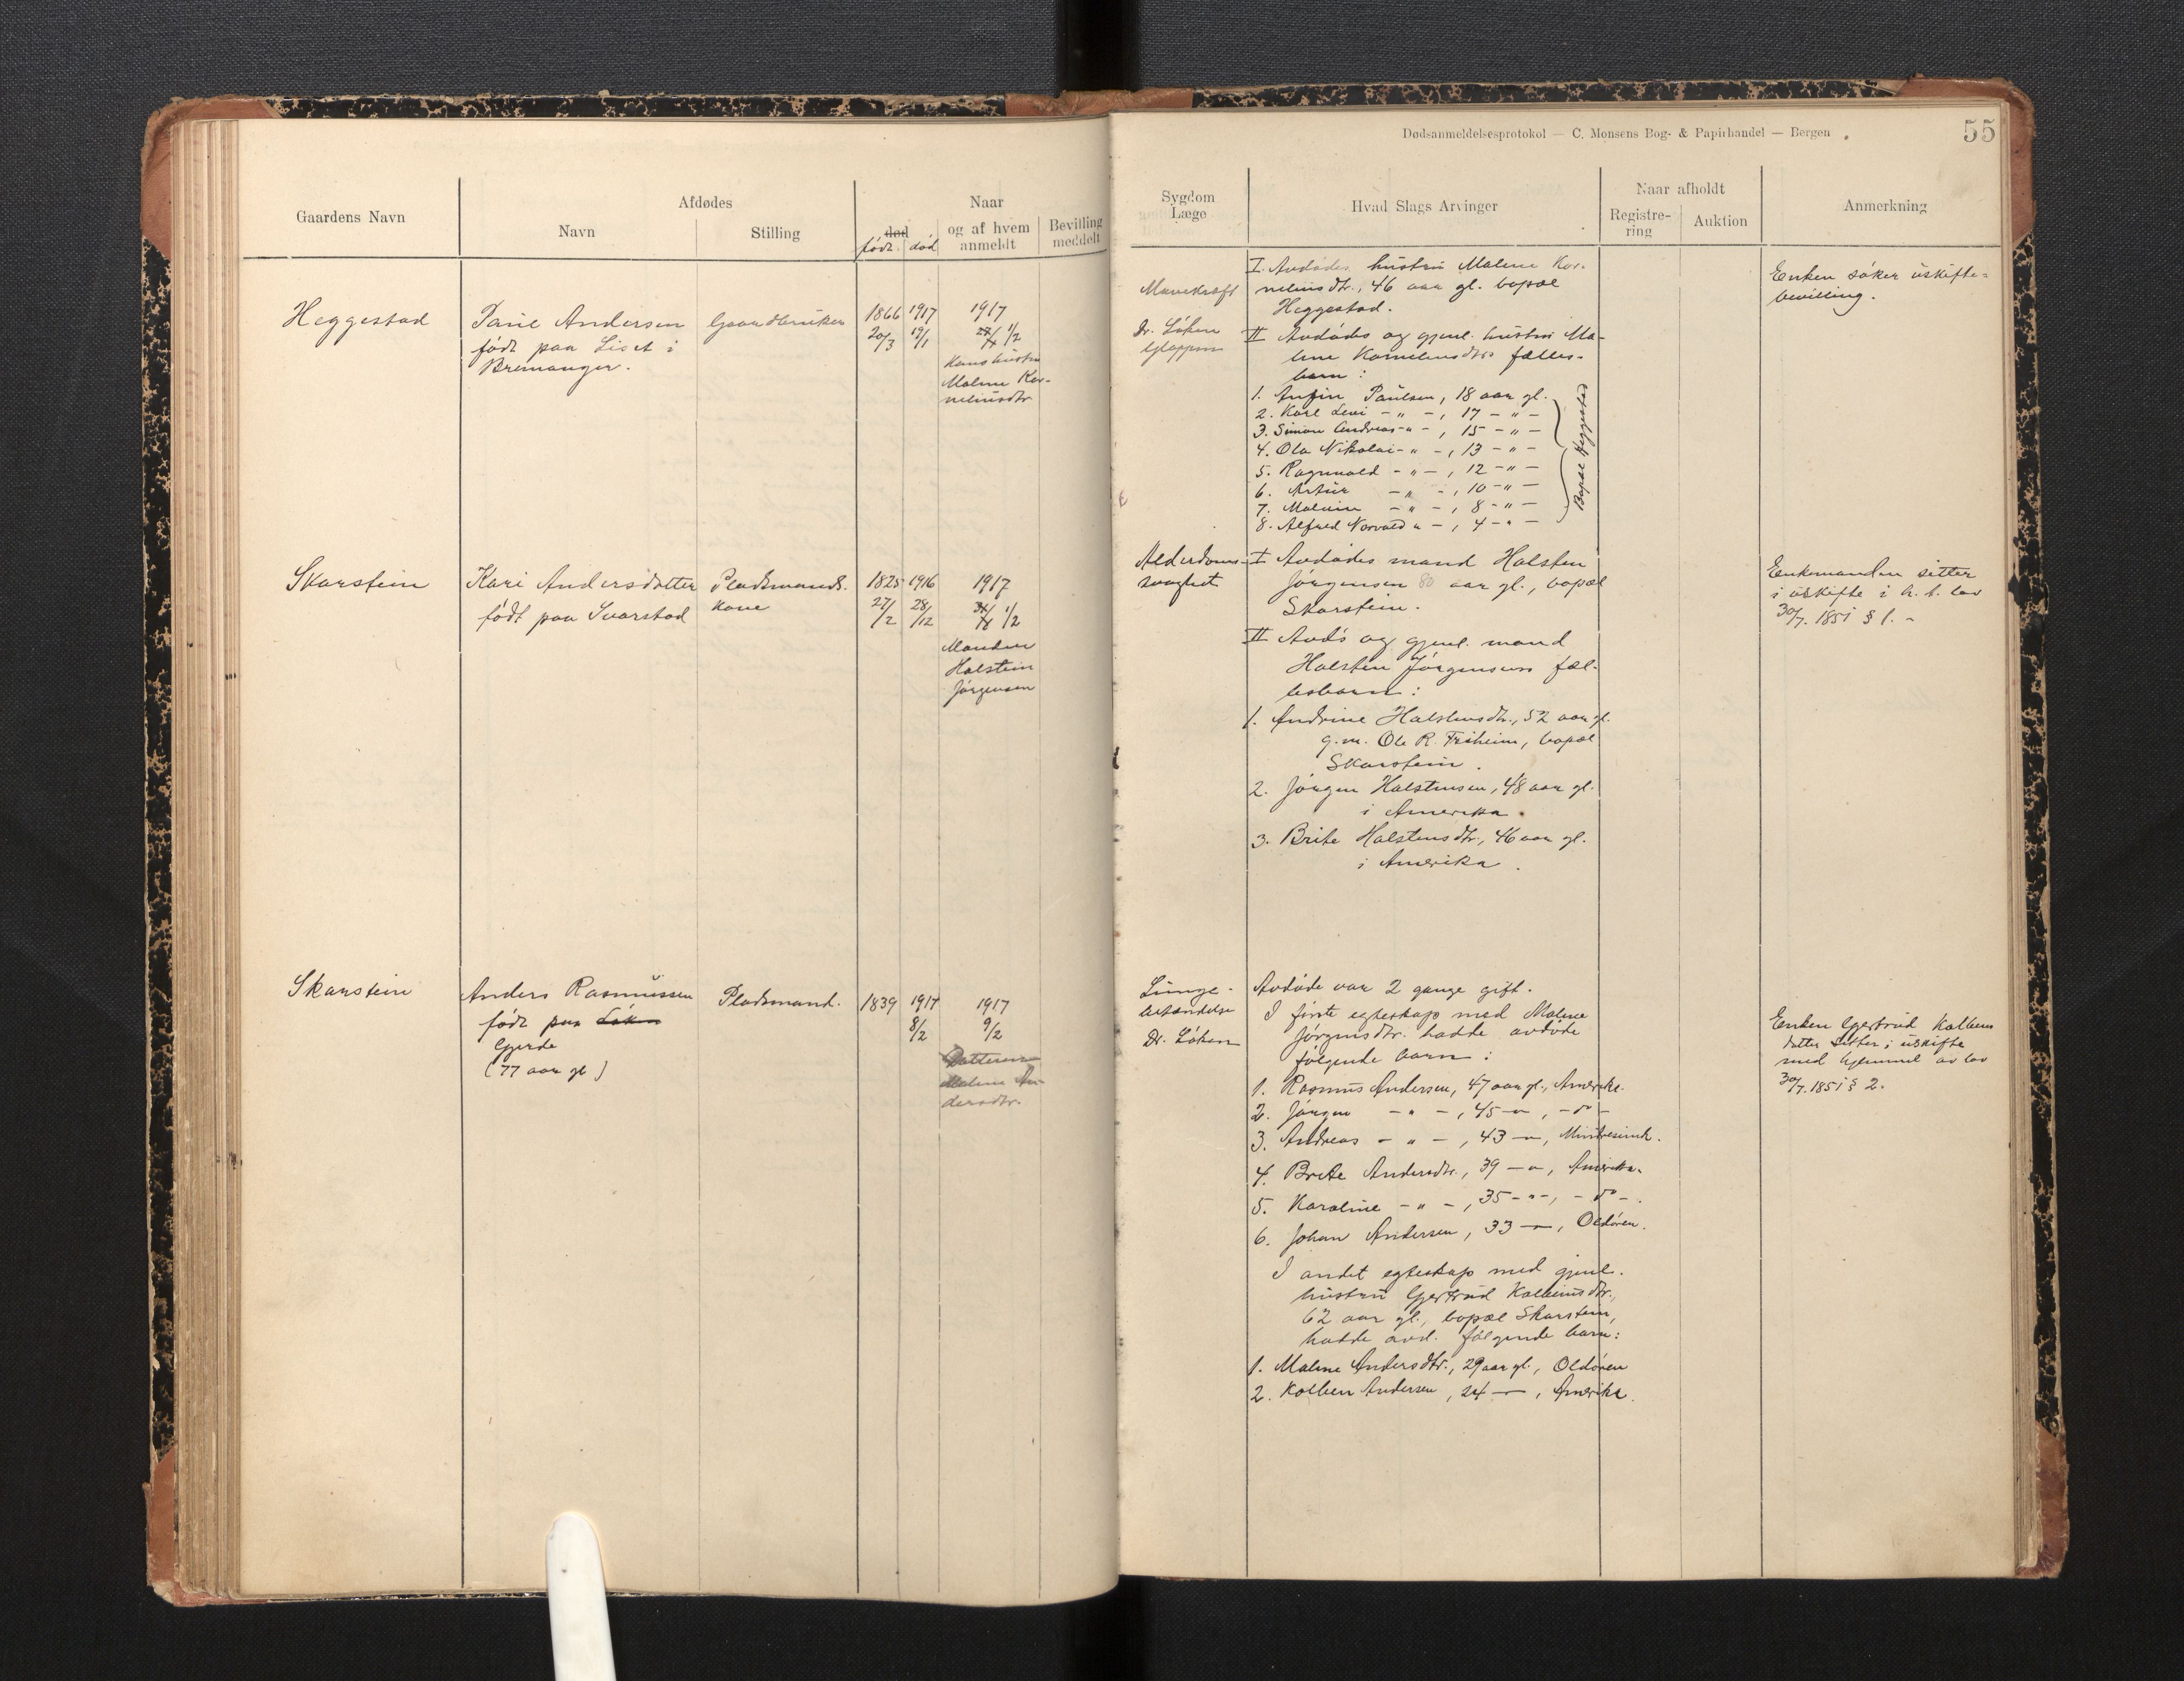 Dødsanmeldelsesprotokol — C. Monsens Bog- & Papirhandel — Bergen
55
Gaardens Navn
Afdødes
Navn
Stilling
Naar
død
født død
og af hvem
anmeldt
Bevilling
meddelt
Sygdom
Læge
Hvad Slags Arvinger
Naar afholdt
Registre-
ring
Auktion
Anmerkning
Heggestad
Paul Andersen
født paa Liset i
Bremanger.
Gaardbruker
1866
20/3
1917
19/1
1917
1/2
Hans hustru
Malene Kor-
neliusdtr
Mavekræft
Dr. Løken
Gloppen
I. Avdødes hustru Malene Kor-
neliusdtr., 46 aar gl. bopæl
Heggestad.
II Avdødes og gjenl. hustru Ma-
lene Korneliusdtrs fælles-
barn:
1. Anfin Paulsen, 18 aar gl.
2. Karl Levi - " -, 17 - " -
3. Simon Andreas - " -, 15 - " -
4. Ola Nikolai - " -, 13 - " -
5. Ragnvald - " -, 12 - " -
6. Artur - " -, 10 - " -
7. Malvin - " -, 8 - " -
8. Alfred Norvald " -, 4 - " -
Bopæl Heggestad
Enken søker uskifte-
bevilling.
Skarstein
Kari Andersdotter
født paa Svarstad
Pladsmands-
kone
1825
27/2
1916
28/12
1917
1/2
Manden
Halstein
Jørgensen
Alderdoms-
svaghet
I Avdødes mand Halsten
Jørgensen 80 aar gl., bopæl
Skarstein.
II Avd's og gjenl. mand
Halsten Jørgensens fæl-
lesbarn:
1. Andrine Halstensdtr., 52 aar gl.
g.m. Ole R. Friheim, bopæl
Skarstein.
2. Jørgen Halstensen, 48 aar gl.
i Amerika.
3. Brite Halstensdtr., 46 aar gl.
i Amerika.
Enkemanden sitter
i uskifte i h. t. lov
30/7. 1851 § 1. -
Skarstein
Anders Rasmussen
født paa
Gjerde
(77 aar gl)
Pladsmand.
1839
1917
8/2
1917
9/2
Datteren
Malene An-
dersdtr.
Lunge-
betændelse
Dr. Løken
Avdøde var 2 gange gift.
I første egteskap med Malene
Jørgensdtr. hadde avdøde
følgende barn:
1. Rasmus Andersen, 47 aar gl., Amerika.
2. Jørgen - " -, 45 - " , - do -
3. Andreas - " -, 43 - " , Mindresunde.
4. Brite Andersdtr., 39 - " , Amerika.
5. Karoline - " -, 35 - " -, - do -.
6. Johan Andersen, 33 - " , Oldøren.
I andet egteskap med gjenl.
hustru Gjertrud Kolbeinsdtr.,
62 aar gl., bopæl Skarstein,
hadde avd. følgende barn:
1. Malene Andersdtr., 29 aar gl., Oldøren
2. Kolbein Andersen, 24 - " , Amerika.
Enken Gjertrud Kolbeins
datter sitter i uskifte
med hjemmel av lov
30/7. 1851 § 2.